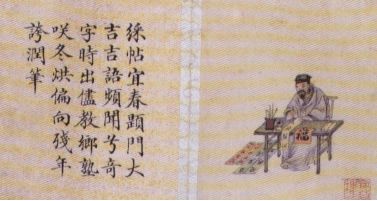 綵帖宜春題門大
吉吉語頻聞兮奇
字時出儘教鄉塾
咲冬烘偏向殘年
誇潤筆
福